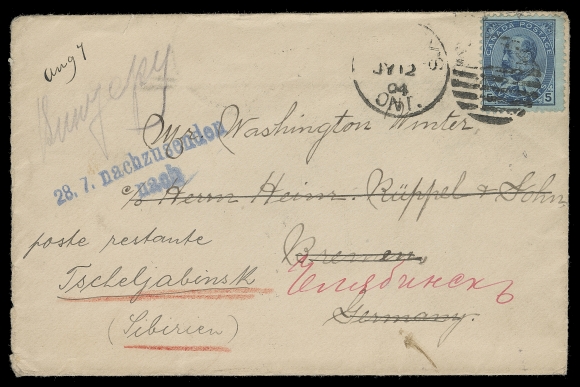 Aug 7
CANADA POSTAGE
5
JY 12
04
ONT.
Mr. Washington Winter,
28. 7. nachzusenden
nach
c/o Herrn Heinr. Rüppel & Sohn,
poste restante
Bremen,
Tscheljabinsk
Челябинскъ
(Sibirien)
Germany.